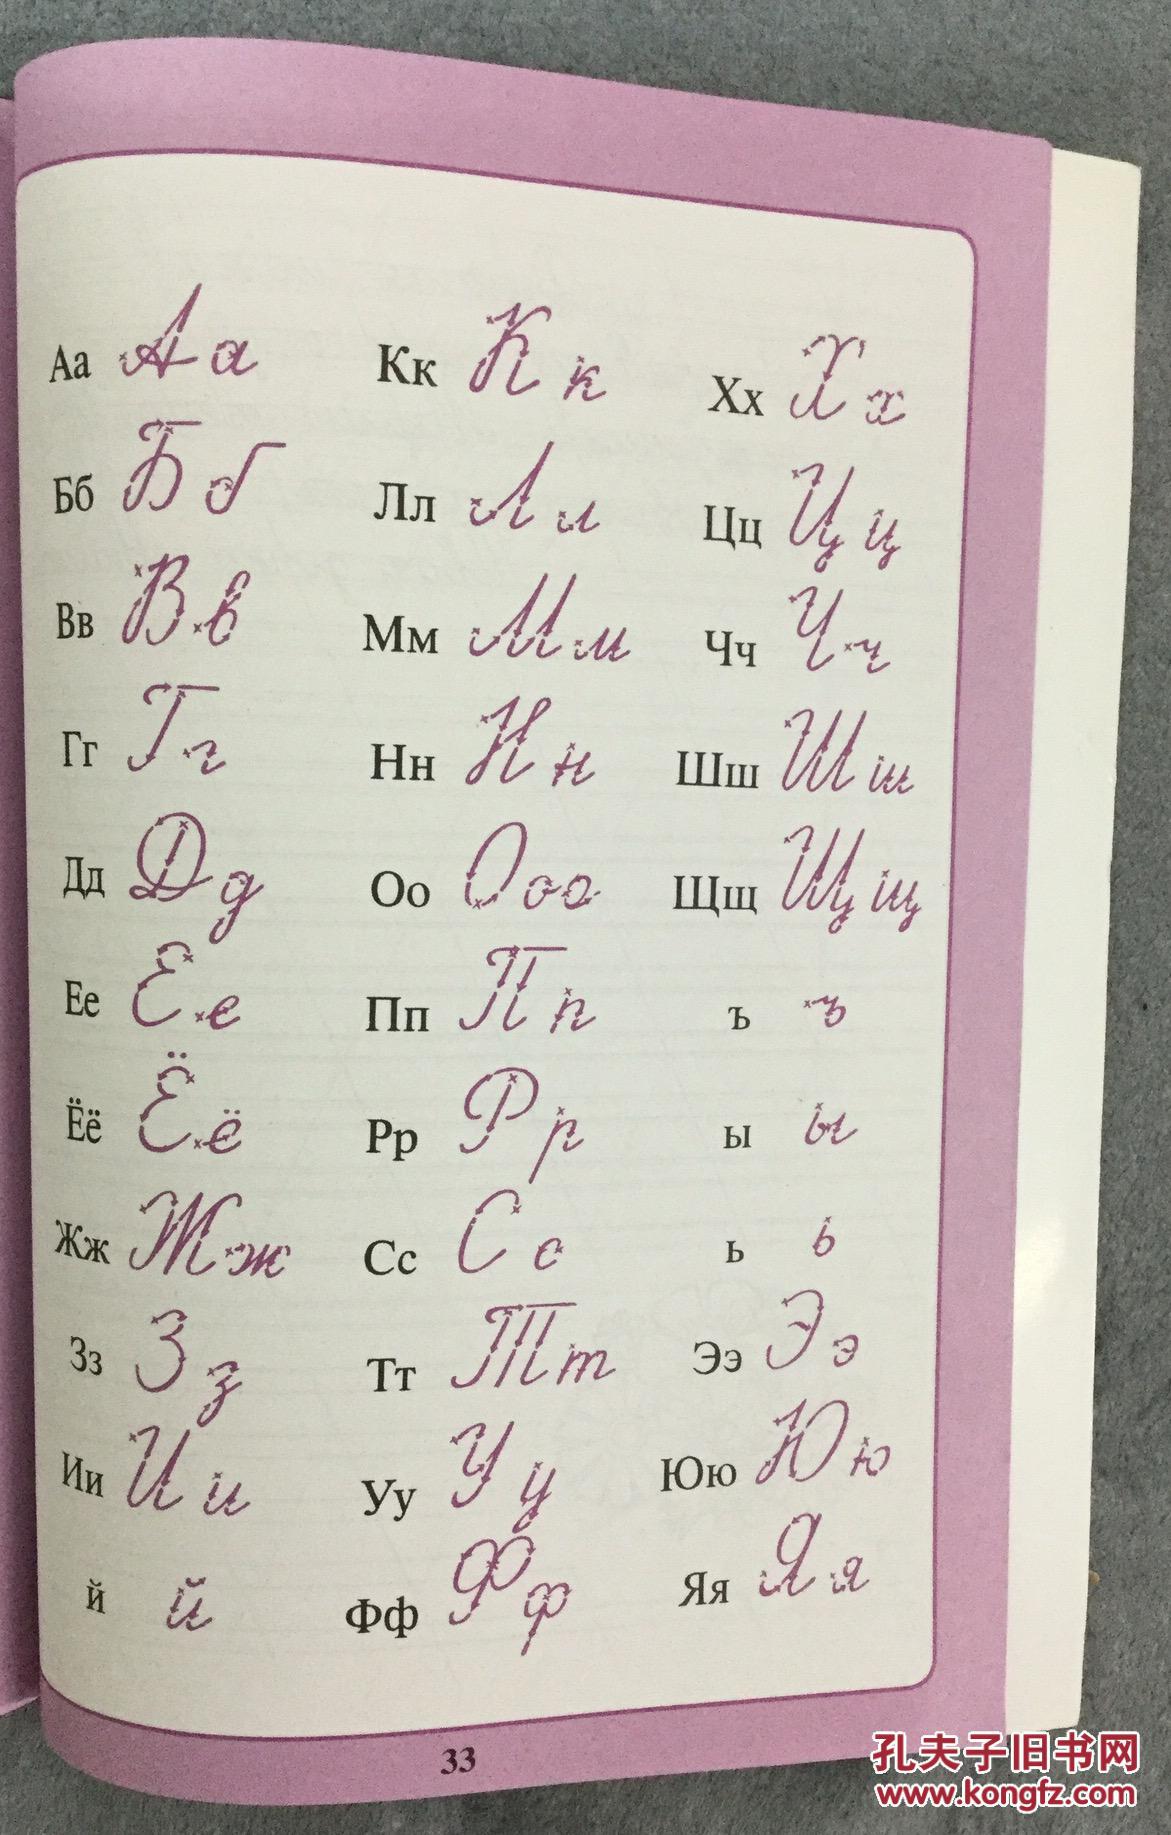 Аа Аа Кк Кк Хх Хх
Бб Бб Лл Лл Цц Цц
Вв Вв Мм Мм Чч Чч
Гг Гг Нн Нн Шш Шш
Дд Дд Оо Ооо Щщ Щщ
Ее Ее Пп Пп ъ ъ
Ёё Ёё Рр Рр ы ы
Жж Жж Сс Сс ь ь
Зз Зз Тт Тт Ээ Ээ
Ии Ии Уу Уу Юю Юю
й й Фф Фф Яя Яя
33
孔夫子旧书网
www.kongfz.com